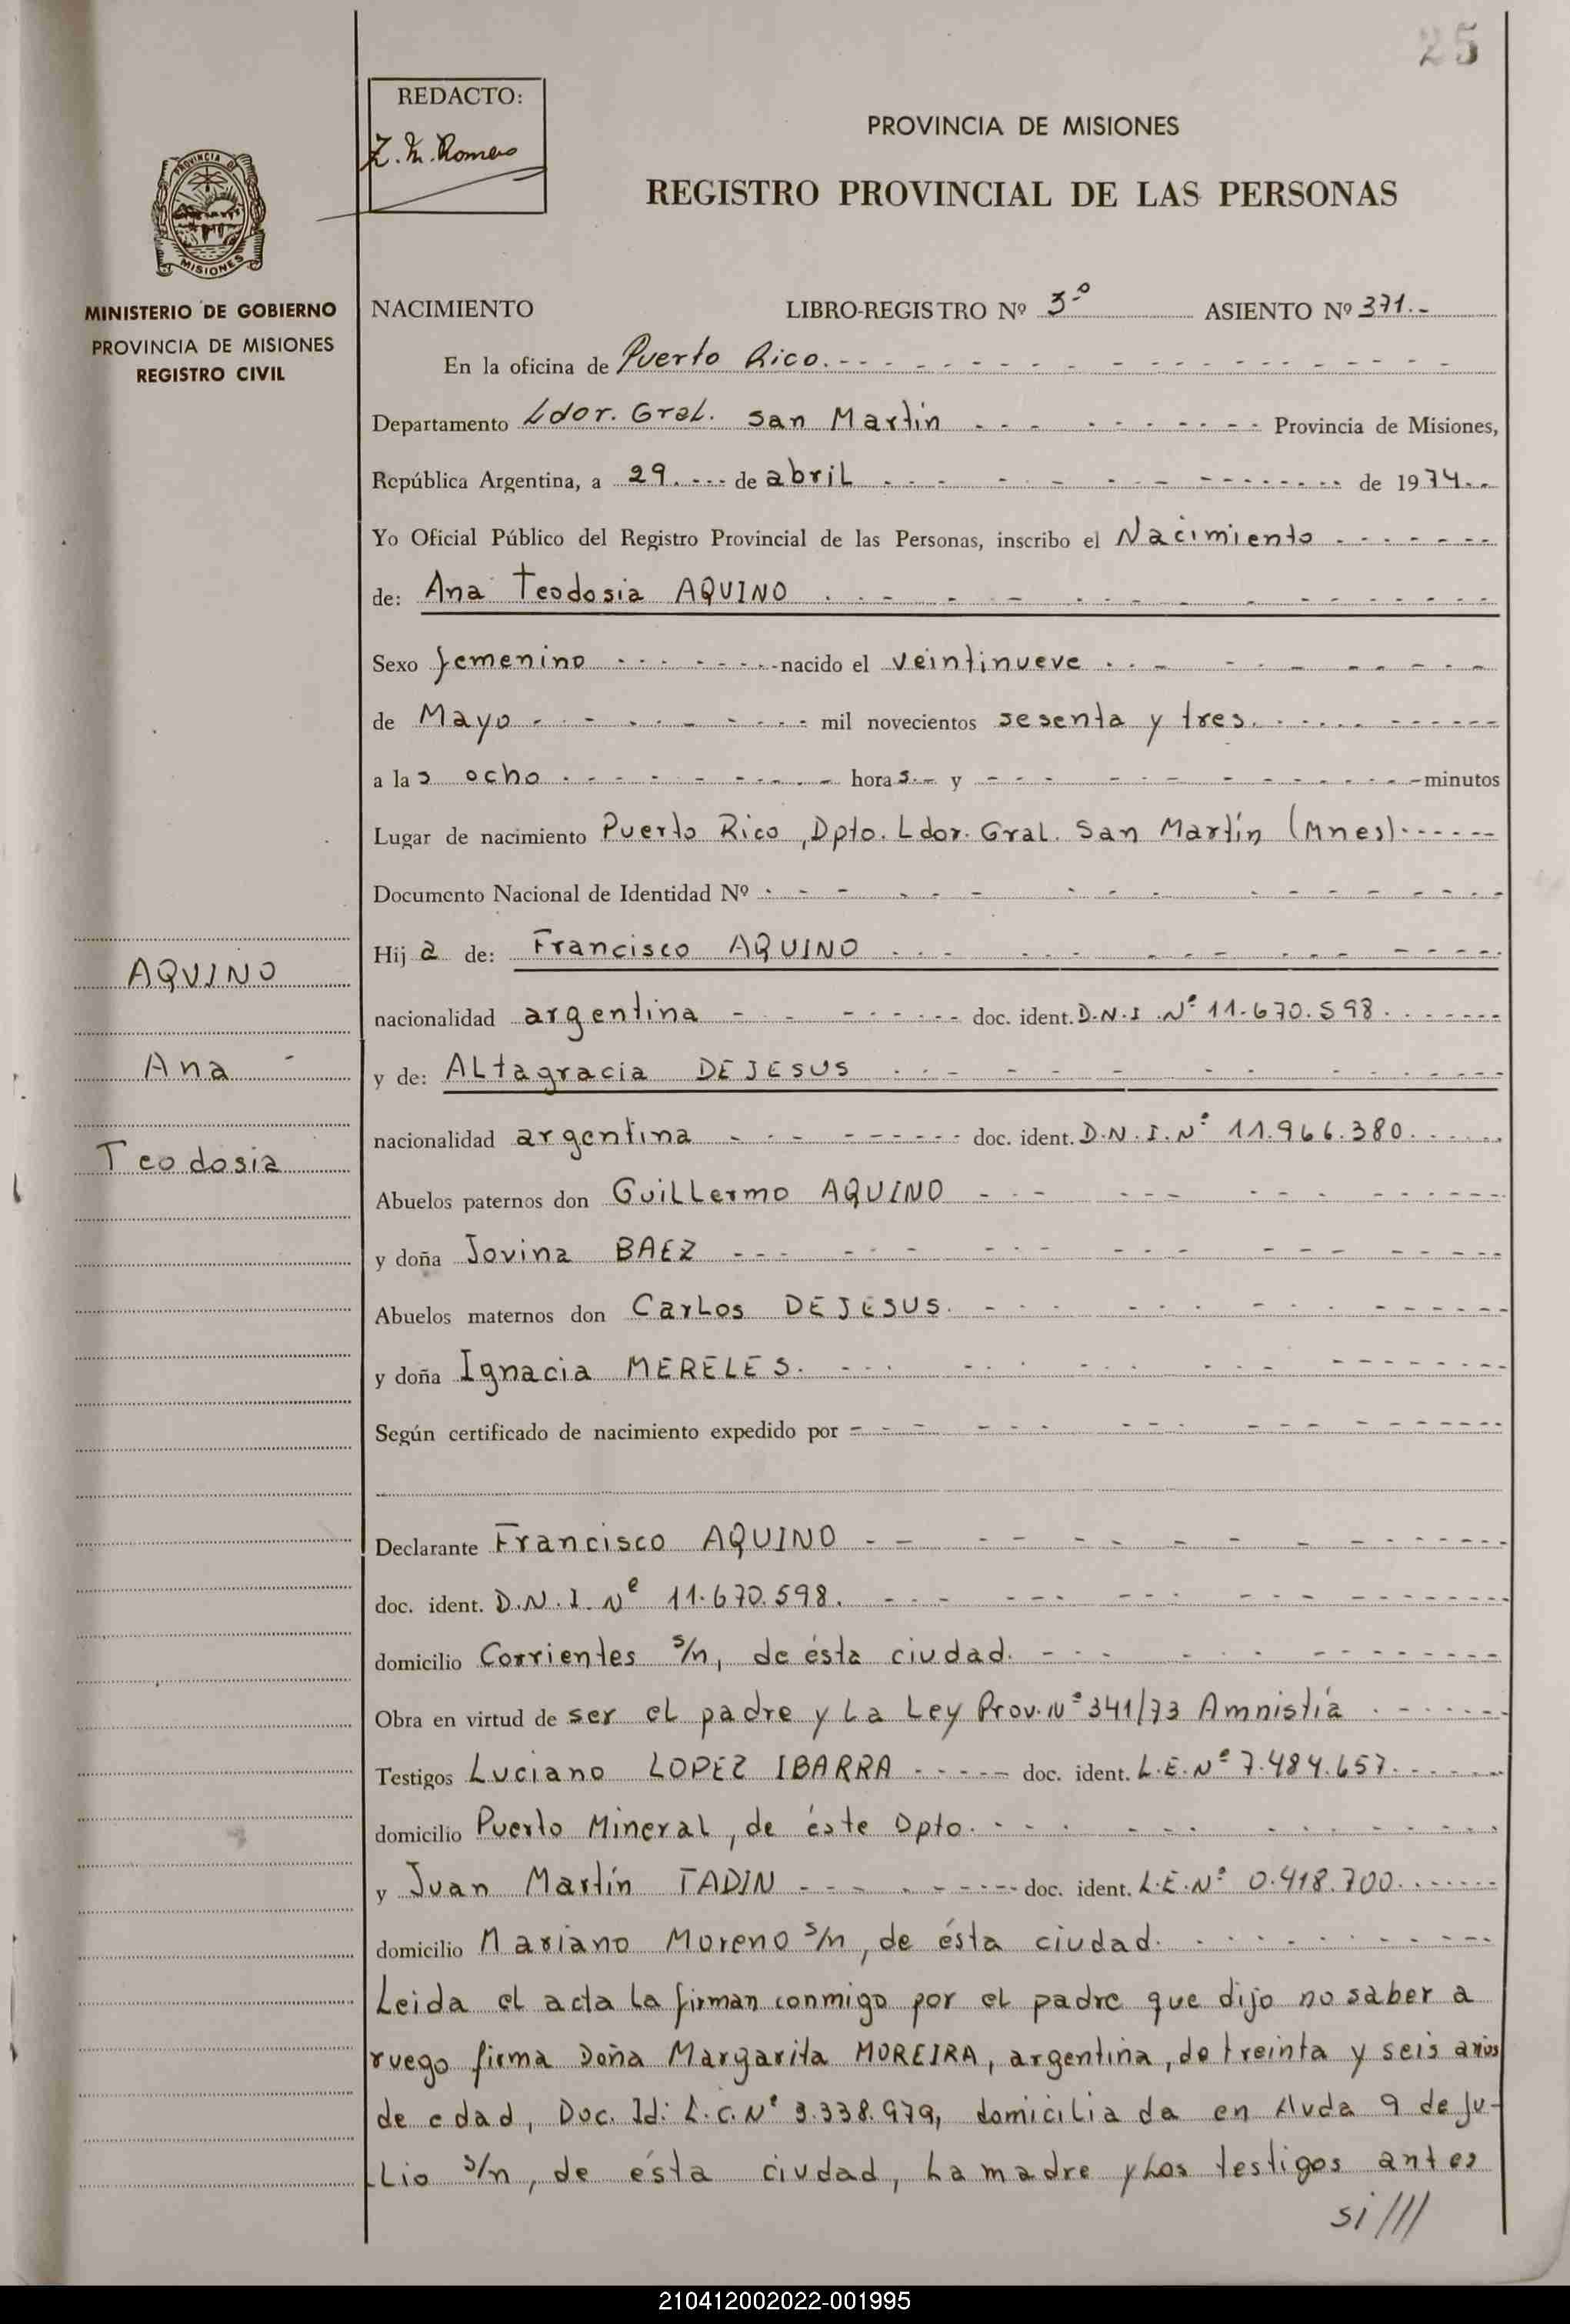 25
REDACTO:
Z. M. Romero
PROVINCIA DE MISIONES
REGISTRO PROVINCIAL DE LAS PERSONAS
PROVINCIA DE
MISIONES
MINISTERIO DE GOBIERNO
PROVINCIA DE MISIONES
REGISTRO CIVIL
NACIMIENTO LIBRO-REGISTRO Nº 3º ASIENTO Nº 371.-
En la oficina de Puerto Rico.
Departamento Ldor. Gral. San Martín Provincia de Misiones,
República Argentina, a 29. de abril de 1974.
Yo Oficial Público del Registro Provincial de las Personas, inscribo el Nacimiento
de: Ana Teodosia AQUINO
Sexo femenino nacido el veintinueve
de Mayo mil novecientos sesenta y tres.
a las ocho horas.- y minutos
Lugar de nacimiento Puerto Rico, Dpto. Ldor. Gral. San Martín (Mnes)
Documento Nacional de Identidad Nº
AQUINO
Ana
Teodosia
Hija de: Francisco AQUINO
nacionalidad argentina doc. ident. D.N.I. Nº 11.670.598.
y de: ALtagracia DEJESUS
nacionalidad argentina doc. ident. D.N.I. Nº 11.966.380.
Abuelos paternos don GuiLLermo AQUINO
y doña Jovina BAEZ
Abuelos maternos don CarLos DEJESUS.
y doña Ignacia MERELES.
Según certificado de nacimiento expedido por
Declarante Francisco AQUINO
doc. ident. D.N.I. Nº 11.670.598.
domicilio Corrientes s/n, de ésta ciudad.
Obra en virtud de ser el padre y La Ley Prov. Nº 341/73 Amnistía
Testigos Luciano LOPEZ IBARRA doc. ident. L.E. Nº 7.484.657.
domicilio Puerto Mineral, de éste Dpto.
y Juan Martín TADIN doc. ident. L.E. Nº 0.418.700.
domicilio Mariano Moreno s/n, de ésta ciudad.
Leida el acta la firman conmigo por el padre que dijo no saber a
ruego firma Doña Margarita MOREIRA, argentina, de treinta y seis años
de edad, Doc. Id: L.C. Nº 3.338.979, domiciliada en Avda 9 de Ju-
Lio s/n, de ésta ciudad, La madre y Los testigos antes
si///
210412002022-001995